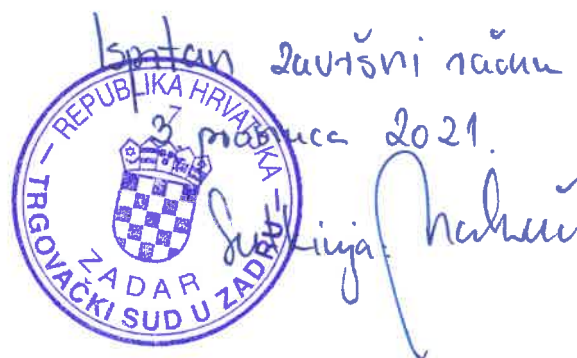 Ispitan završni račun
3. prosinca 2021.
Sutkinja:
— REPUBLIKA HRVATSKA —
7
ZADAR
TRGOVAČKI SUD U ZADRU